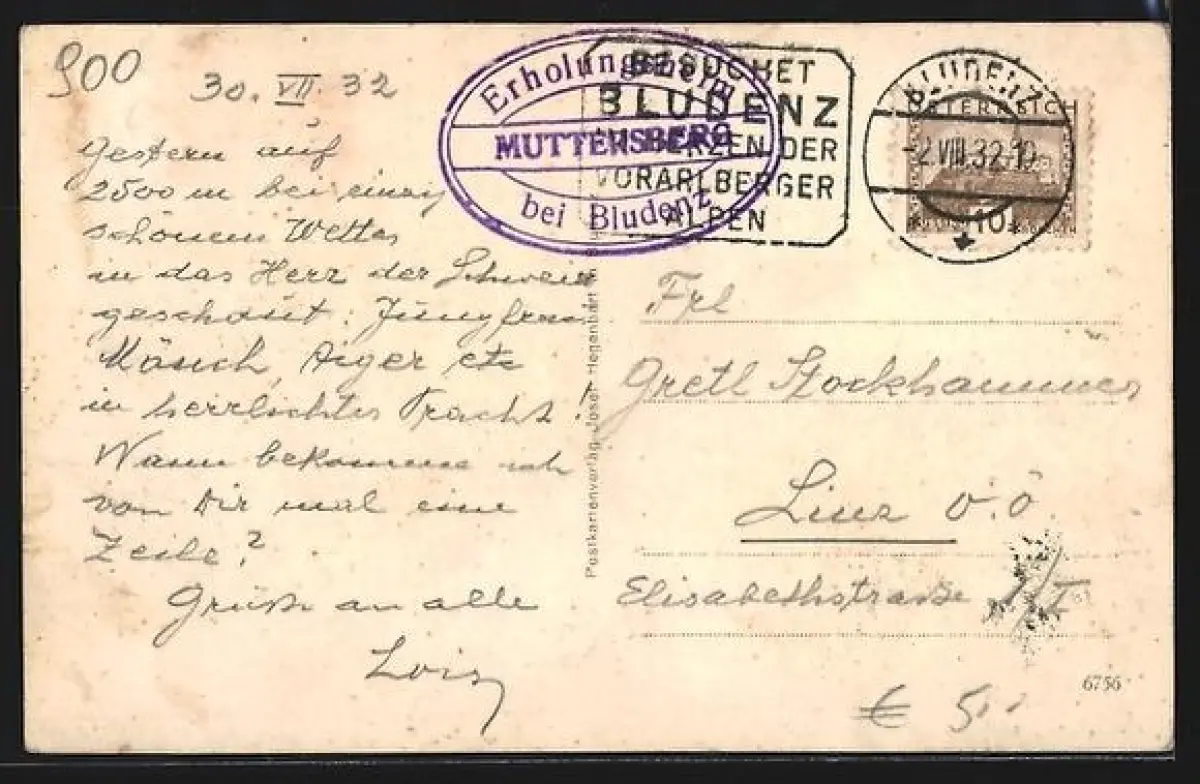 900
30. VII. 32
Gestern auf
2500 m bei einem
schönem Wetter
in das Herz der Schweiz
geschaut. Jungfrau
Mönch, Aiger etc
in herrlichter Pracht!
Wann bekomme ich
von Dir mal eine
Zeile?
Grüße an alle
Lois
Erholungsheim
MUTTERSBERG
bei Bludenz
BESUCHET
BLUDENZ
IM HERZEN DER
VORARLBERGER
ALPEN
BLUDENZ
-2.VIII.32.10
ÖSTERREICH
10
Postkartenverlag Josef Hegenbart
Frl
Gretl Stockhammer
Linz O.Ö.
Elisabethstraße
6756
€ 5.-